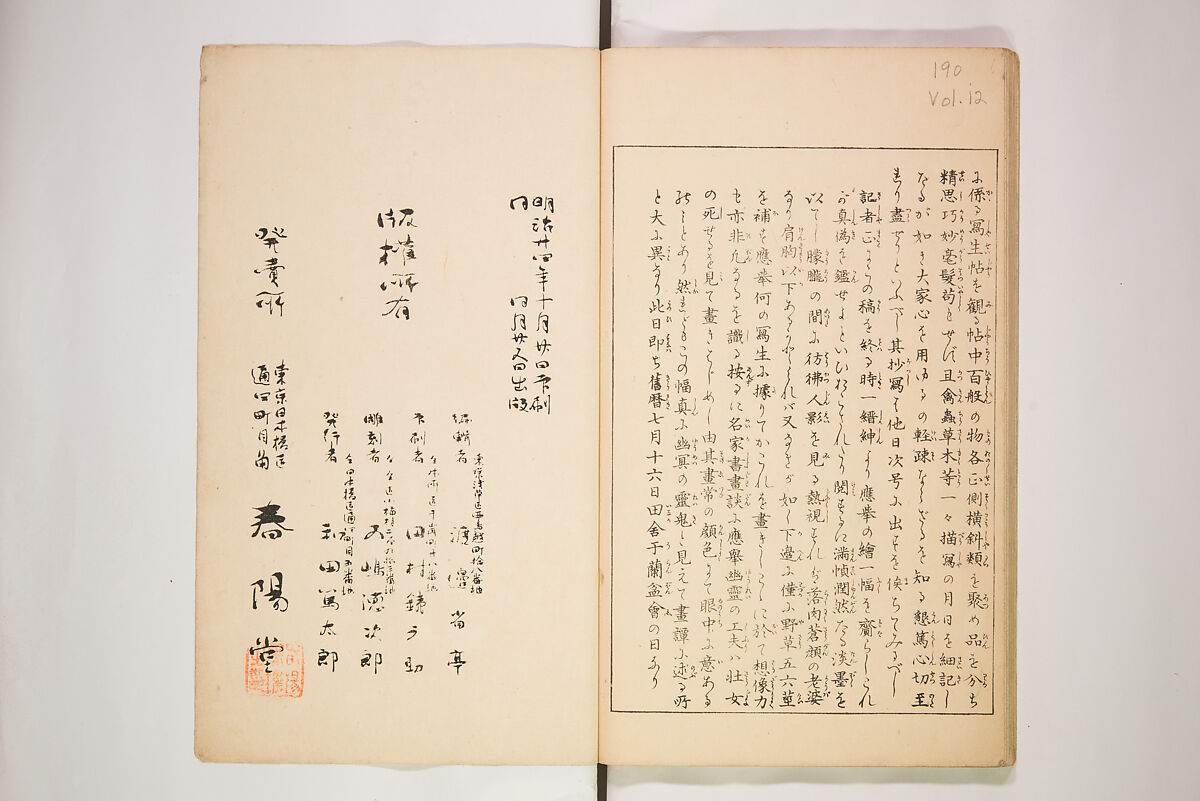 190
Vol. 12
に係る寫生帖を觀る帖中百般の物各正側横斜類を聚め品を分ち
精思巧妙毫髮苟もせず且禽蟲草木等一々描寫の月日を細記し
たるが如き大家心を用ゆるの輕疎ならざるを知る懇篤心切至
れり盡せりといふべし其抄寫は他日次號に出すを俟ちてみるべし
記者正にこの稿を終る時一縉紳より應擧の繪一幅を齎らしこれ
が真偽を鑑せよといひおこされたり閲するに滿幀潤然たる淡墨を
以てし朦朧の間に彷彿人影を見る熟視すれば落肉蒼顏の老婆
なり肩胸以下あるかとすれば又なきが如く下邊に僅に野草五六莖
を補す應擧何の寫生に據りてかこれを畫きしこゝに於て想像力
も亦非凡なるを識る按るに名家書畫談に應擧幽靈の工夫ハ壯女
の死せるを見て畫きはじめし由其畫常の顏色にて眼中に意ある
のミとあり然れどもこの幅真に幽冥の靈鬼と見えて畫譚に述る所
と大に異なり此日即ち舊曆七月十六日田舍于蘭盆會の日なり
明治廿四年十月廿日印刷
同 同月廿五日出版
版權所有
編輯者 東京淺草區 渡邊省亭
印刷者 田村鐵之助
彫刻者 五嶋德次郎
發行者 全日本橋區通四町目五番地 和田篤太郎
發賣所 東京日本橋區通四町目角 春陽堂